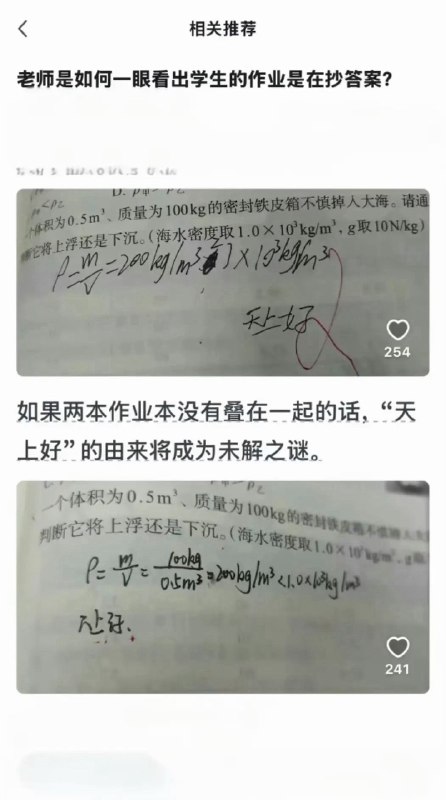 相关推荐
老师是如何一眼看出学生的作业是在抄答案？
一个体积为0.5m³、质量为100kg的密封铁皮箱不慎掉入大海。请通
判断它将上浮还是下沉。(海水密度取1.0×10³kg/m³，g取10N/kg)
ρ=m/V=200kg/m³ ×10³kg/m³
天上好
254
如果两本作业本没有叠在一起的话，“天
上好”的由来将成为未解之谜。
一个体积为0.5m³、质量为100kg的密封铁皮箱不慎掉入大
判断它将上浮还是下沉。(海水密度取1.0×10³kg/m³，g取
ρ=m/V=100kg/0.5m³=200kg/m³<1.0×10³kg/m³
241